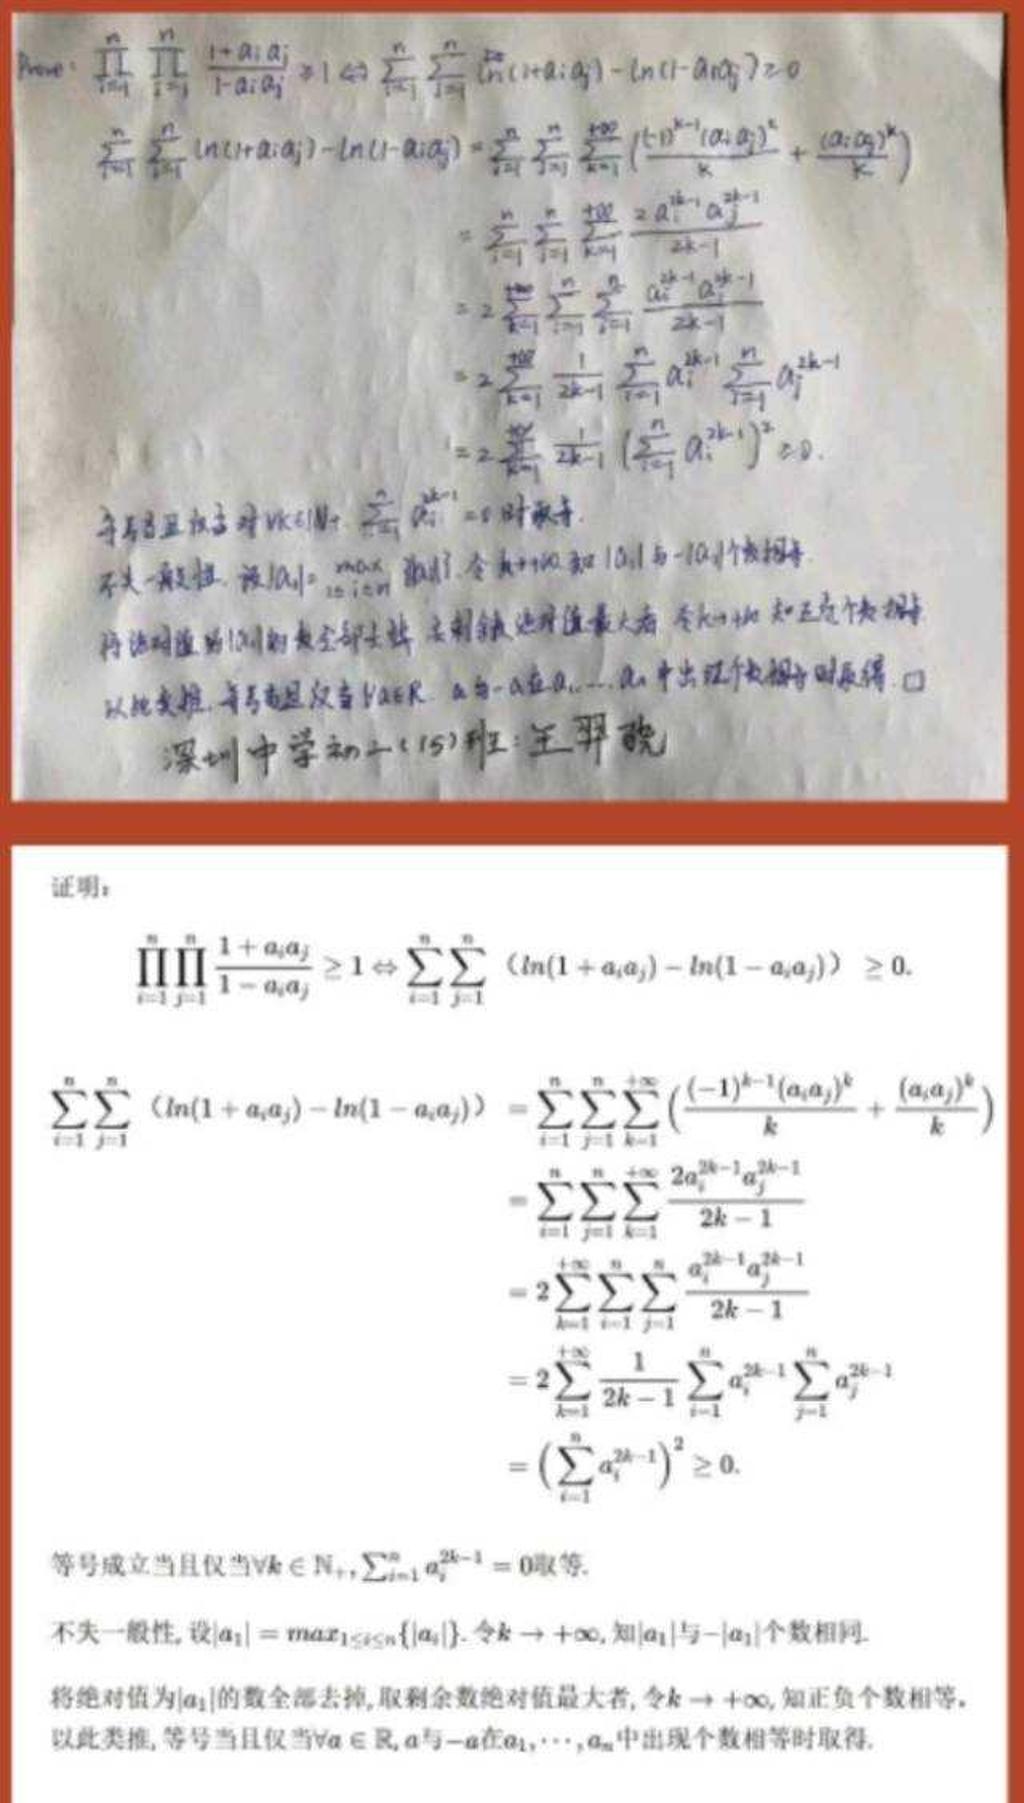 Prove: \prod_{i=1}^{n} \prod_{j=1}^{n} \frac{1+a_i a_j}{1-a_i a_j} ≥ 1 ⇔ \sum_{i=1}^{n} \sum_{j=1}^{n} ln(1+a_i a_j) - ln(1-a_i a_j) ≥ 0
\sum_{i=1}^{n} \sum_{j=1}^{n} ln(1+a_i a_j) - ln(1-a_i a_j) = \sum_{i=1}^{n} \sum_{j=1}^{n} \sum_{k=1}^{+∞} (\frac{(-1)^{k-1}(a_i a_j)^k}{k} + \frac{(a_i a_j)^k}{k})
= \sum_{i=1}^{n} \sum_{j=1}^{n} \sum_{k=1}^{+∞} \frac{2 a_i^{2k-1} a_j^{2k-1}}{2k-1}
= 2 \sum_{k=1}^{+∞} \sum_{i=1}^{n} \sum_{j=1}^{n} \frac{a_i^{2k-1} a_j^{2k-1}}{2k-1}
= 2 \sum_{k=1}^{+∞} \frac{1}{2k-1} \sum_{i=1}^{n} a_i^{2k-1} \sum_{j=1}^{n} a_j^{2k-1}
= 2 \sum_{k=1}^{+∞} \frac{1}{2k-1} (\sum_{i=1}^{n} a_i^{2k-1})^2 ≥ 0.
等号当且仅当对∀k∈N+, \sum_{i=1}^{n} a_i^{2k-1} = 0时取等.
不失一般性, 设|a_1| = max_{1≤i≤n}{|a_i|}. 令k→+∞, 知|a_1|与-|a_1|个数相等.
将绝对值为|a_1|的数全部去掉, 取剩余绝对值最大者, 令k→+∞ 知正负个数相等.
以此类推, 等号当且仅当∀a∈R, a与-a在a_1,…,a_n中出现个数相等时取得. □
深圳中学初二(15)班: 王羿
证明:
\prod_{i=1}^{n} \prod_{j=1}^{n} \frac{1+a_i a_j}{1-a_i a_j} ≥ 1 ⇔ \sum_{i=1}^{n} \sum_{j=1}^{n} (ln(1+a_i a_j) - ln(1-a_i a_j)) ≥ 0.
\sum_{i=1}^{n} \sum_{j=1}^{n} (ln(1+a_i a_j) - ln(1-a_i a_j)) = \sum_{i=1}^{n} \sum_{j=1}^{n} \sum_{k=1}^{+∞} (\frac{(-1)^{k-1}(a_i a_j)^k}{k} + \frac{(a_i a_j)^k}{k})
= \sum_{i=1}^{n} \sum_{j=1}^{n} \sum_{k=1}^{+∞} \frac{2a_i^{2k-1} a_j^{2k-1}}{2k-1}
= 2 \sum_{k=1}^{+∞} \sum_{i=1}^{n} \sum_{j=1}^{n} \frac{a_i^{2k-1} a_j^{2k-1}}{2k-1}
= 2 \sum_{k=1}^{+∞} \frac{1}{2k-1} \sum_{i=1}^{n} a_i^{2k-1} \sum_{j=1}^{n} a_j^{2k-1}
= (\sum_{i=1}^{n} a_i^{2k-1})^2 ≥ 0.
等号成立当且仅当∀k ∈ N_+, \sum_{i=1}^{n} a_i^{2k-1} = 0取等.
不失一般性, 设|a_1| = max_{1≤i≤n}{|a_i|}. 令k → +∞, 知|a_1|与-|a_1|个数相同.
将绝对值为|a_1|的数全部去掉, 取剩余数绝对值最大者, 令k → +∞, 知正负个数相等。
以此类推, 等号当且仅当∀a ∈ R, a与-a在a_1, ⋯, a_n中出现个数相等时取得.